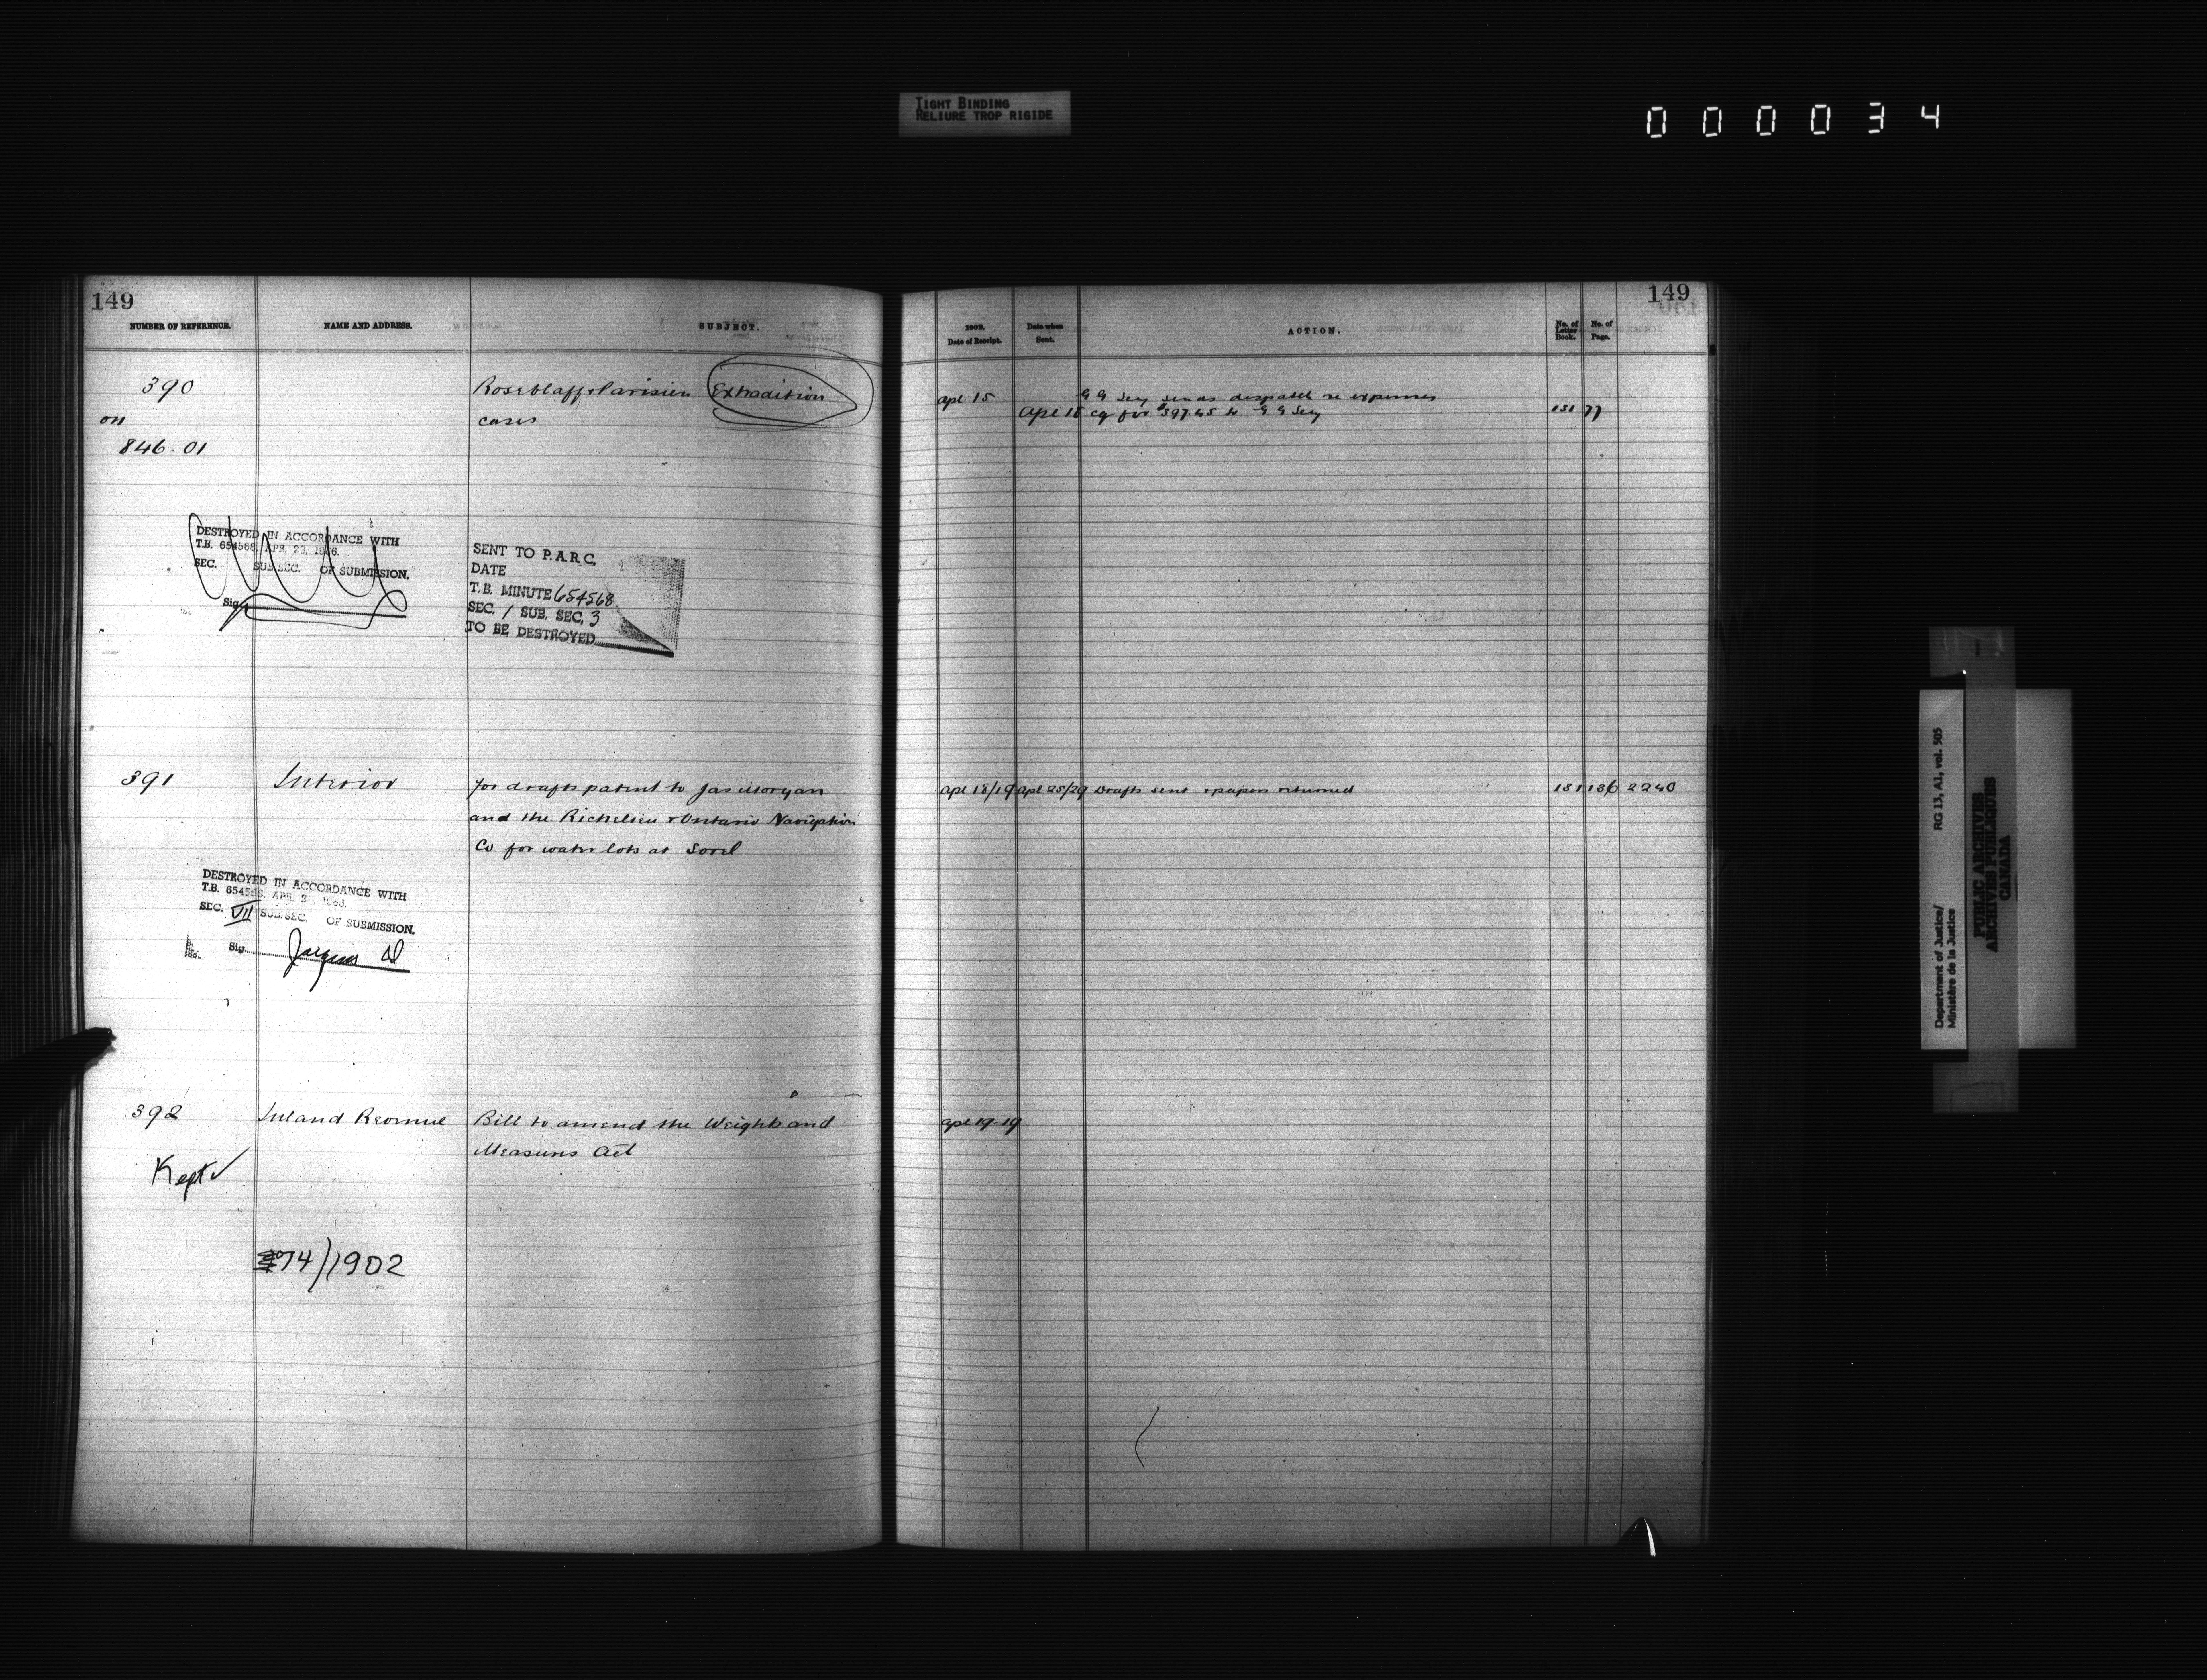 TIGHT BINDING
RELIURE TROP RIGIDE
000034
149
NUMBER OF REFERENCE. NAME AND ADDRESS. SUBJECT.
390 Roseblaff & Parisien Extradition
on cases
846.01
DESTROYED IN ACCORDANCE WITH
T.B. 654568, APR. 23, 1966.
SEC. SUB.SEC. OF SUBMISSION.
Sig.
SENT TO P.A.R.C.
DATE
T.B. MINUTE 654568
SEC. 1 SUB. SEC. 3
TO BE DESTROYED
391 Interior for drafts patent to Jas Morgan
and the Richelieu & Ontario Navigation
Co for water lots at Sorel
DESTROYED IN ACCORDANCE WITH
T.B. 654568, APR.
SEC. VII SUB.SEC. OF SUBMISSION.
Sig.
392 Inland Revenue Bill to amend the Weights and
Measures Act
Kept ✓
74/1902
149
1902. Date of Receipt. Date when Sent. ACTION. No. of Letter Book. No. of Page.
Apl 15 G G Secy sends despatch re expenses
Apl 15 cq for $397.45 to G G Secy 151 77
Apl 18/19 Apl 25/29 Drafts sent & papers returned 151 136 2240
Apl 19-19
Department of Justice/
Ministère de la Justice
RG 13, A1, vol. 505
PUBLIC ARCHIVES
ARCHIVES PUBLIQUES
CANADA